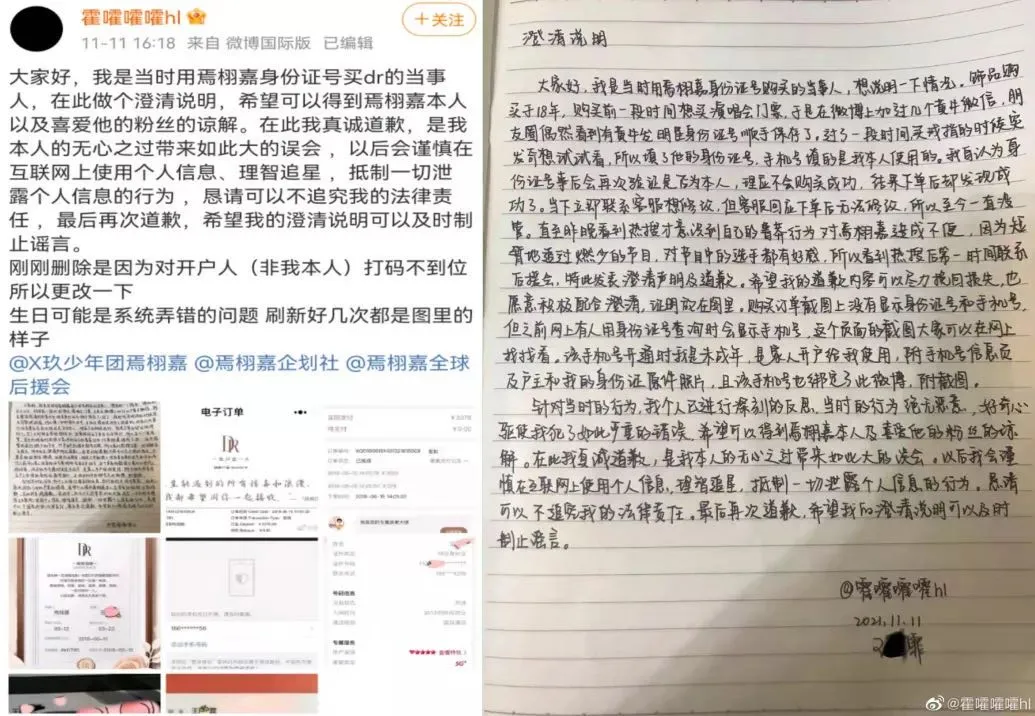 霍嚯嚯嚯hl
+关注
11-11 16:18 来自 微博国际版 已编辑
大家好，我是当时用焉栩嘉身份证号买dr的当事
人，在此做个澄清说明，希望可以得到焉栩嘉本人
以及喜爱他的粉丝的谅解。在此我真诚道歉，是我
本人的无心之过带来如此大的误会 ，以后会谨慎在
互联网上使用个人信息、理智追星 ，抵制一切泄
露个人信息的行为 ，恳请可以不追究我的法律责
任 ，最后再次道歉，希望我的澄清说明可以及时制
止谣言。
刚刚删除是因为对开户人（非我本人）打码不到位
所以更改一下
生日可能是系统弄错的问题 刷新好几次都是图里的
样子
@X玖少年团焉栩嘉 @焉栩嘉企划社 @焉栩嘉全球
后援会
电子订单
DR
生命遇到的所有惊喜和浪漫，
我都希望同你一起接收。
DR
号码信息
专属服务
5G+
澄清说明
大家好，我是当时用焉栩嘉身份证号购买的当事人，想说明一下情况。饰品购
买于18年，购买前一段时间想买演唱会门票，于是在微博上加过几个黄牛微信，朋
友圈偶然看到有黄牛发明星身份证号顺手保存了。过了一段时间买戒指的时候突
发奇想试试看，所以填了他的身份证号，手机号填的是我本人使用的。我自认为身
份证号事后会再次验证是否为本人，理应不会购买成功，结果下单后却发现成
功了。当下立即联系客服想修改，但客服回应下单后无法修改，所以至今一直没
管。直至昨晚看到热搜才意识到自己的鲁莽行为对焉栩嘉造成不便，因为短
暂地追过《燃少》的节目，对节目中的选手都有好感，所以看到热搜后第一时间联系
后援会，特此发表澄清声明及道歉。希望我的道歉内容可以尽力挽回损失，也
愿意积极配合澄清，证明放在图里。购买订单截图上没有显示身份证号和手机号，
但之前网上有人用身份证号查询时会显示手机号，这个页面的截图大家可以在网上
找找看。该手机号开通时我是未成年，是家人开户给我使用，附手机号信息页
及户主和我的身份证原件照片，且该手机号也绑定了此微博，附截图。
针对当时的行为，我个人已进行深刻的反思，当时的行为绝无恶意，好奇心
驱使我犯了如此严重的错误，希望可以得到焉栩嘉本人及喜爱他的粉丝的谅
解。在此我真诚道歉，是我本人的无心之过带来如此大的误会。以后我会谨
慎在互联网上使用个人信息，理智追星，抵制一切泄露个人信息的行为。恳请
可以不追究我的法律责任。最后再次道歉，希望我的澄清说明可以及时
制止谣言。
@霍嚯嚯嚯hl
2021.11.11
@霍嚯嚯嚯hl